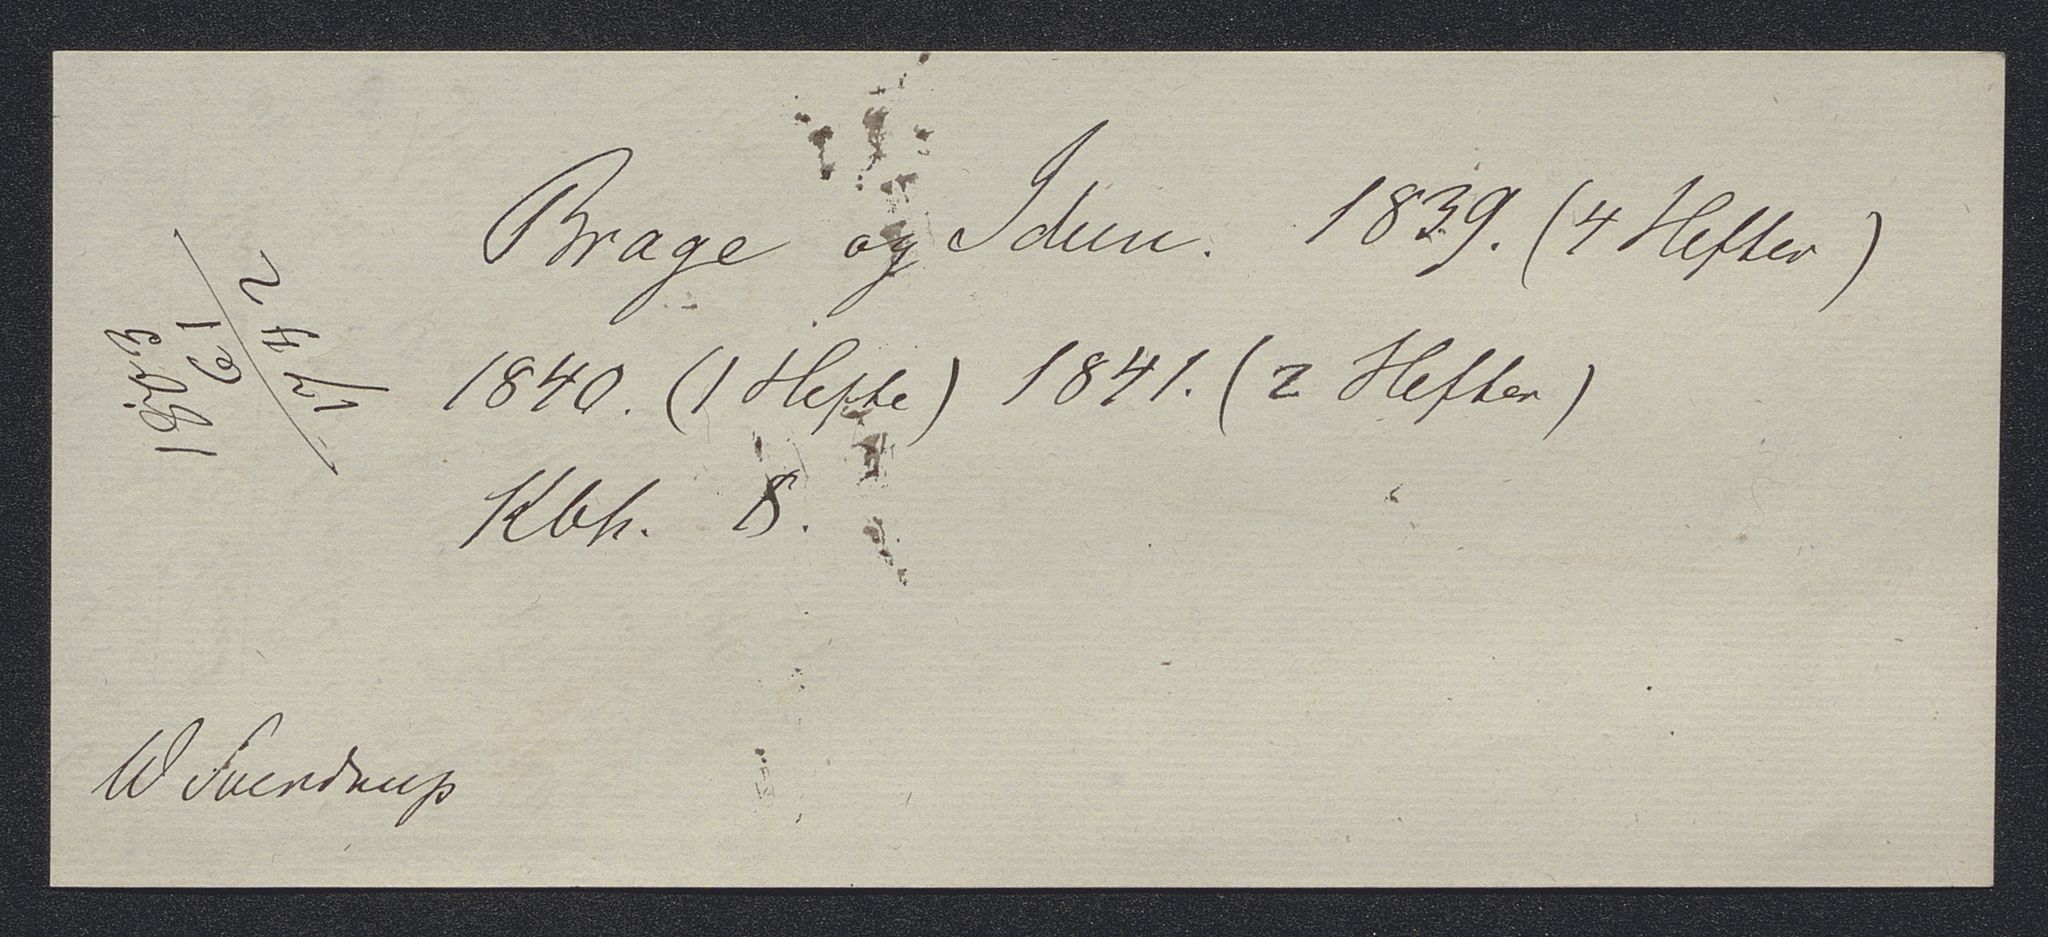 Brage og Idun. 1839. (4 Hefter)
1840. (1 Hefte) 1841. (2 Hefter)
Kbh. 8.
W Sverdrup